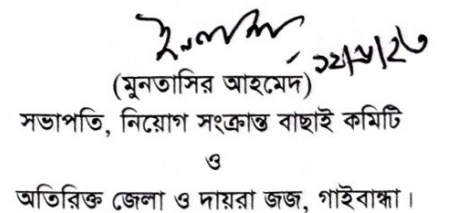 (মুনতাসির আহমেদ)
সভাপতি, নিয়োগ সংক্রান্ত বাছাই কমিটি
ও
অতিরিক্ত জেলা ও দায়রা জজ, গাইবান্ধা।